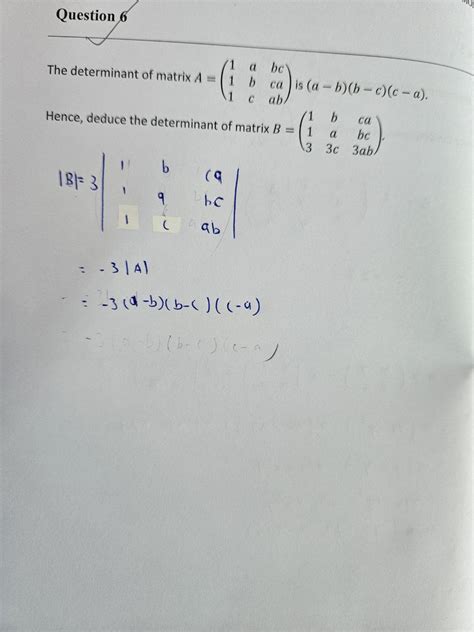 Question 6
The determinant of matrix A = (1 a bc
1 b ca
1 c ab) is (a − b)(b − c)(c − a).
Hence, deduce the determinant of matrix B = (1 b ca
1 a bc
3 3c 3ab).
|B| = 3 | 1 b ca
1 a bc
1 c ab |
= -3|A|
= -3(a-b)(b-c)(c-a)
-3(a-b)(b-c)(c-a)